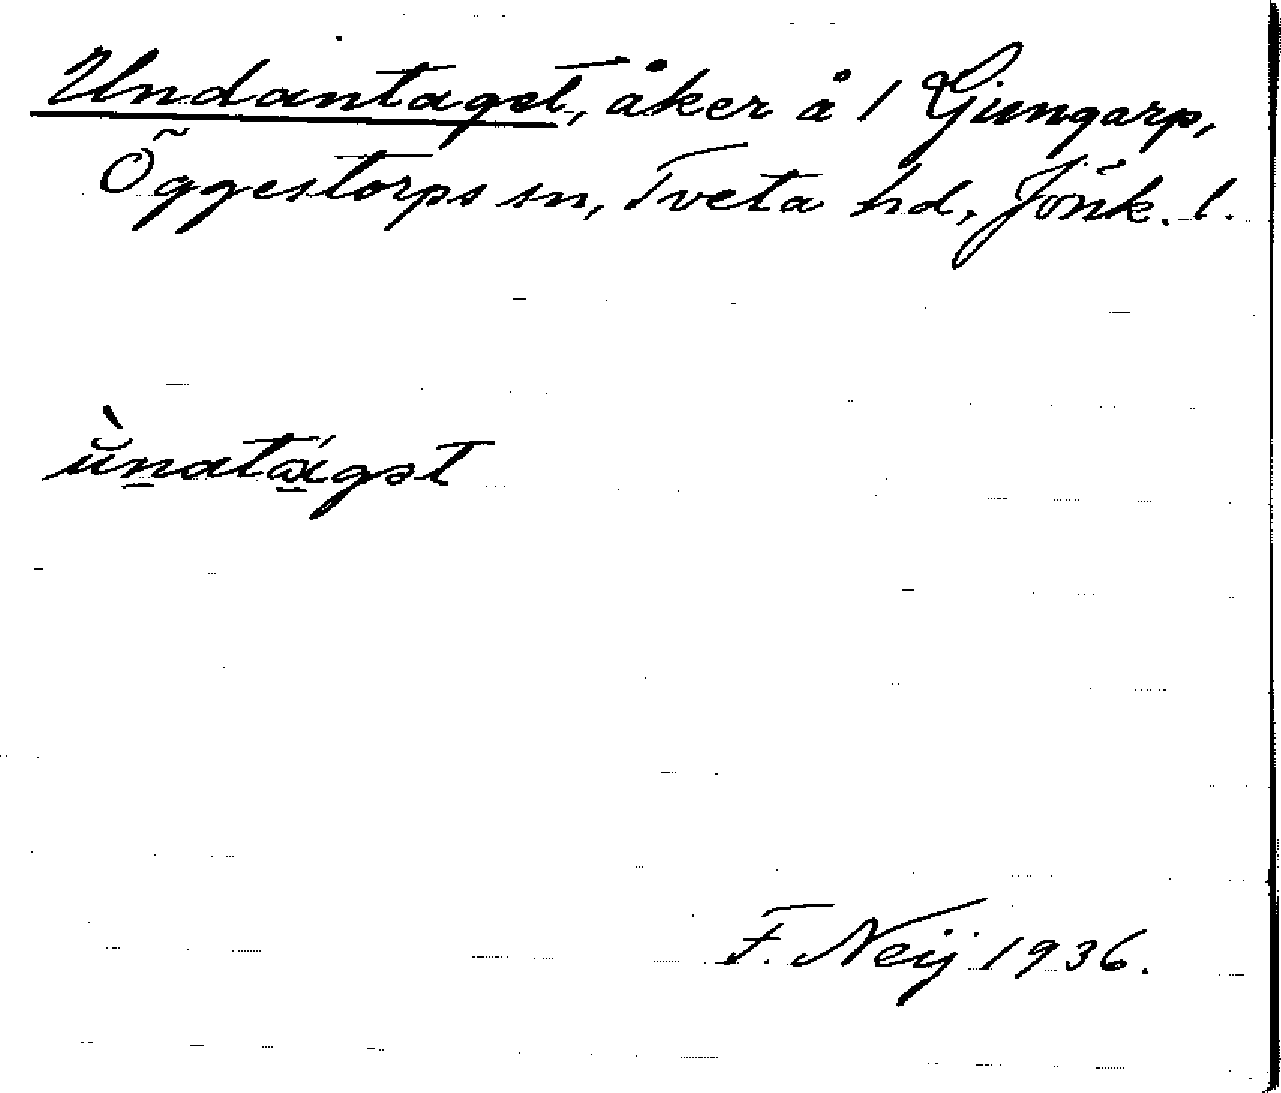 Undantaget, åker å 1 Ljungarp,
Öggestorps sn, Tveta hd, Jönk. l.
ùndtágət
F. Neij 1936.